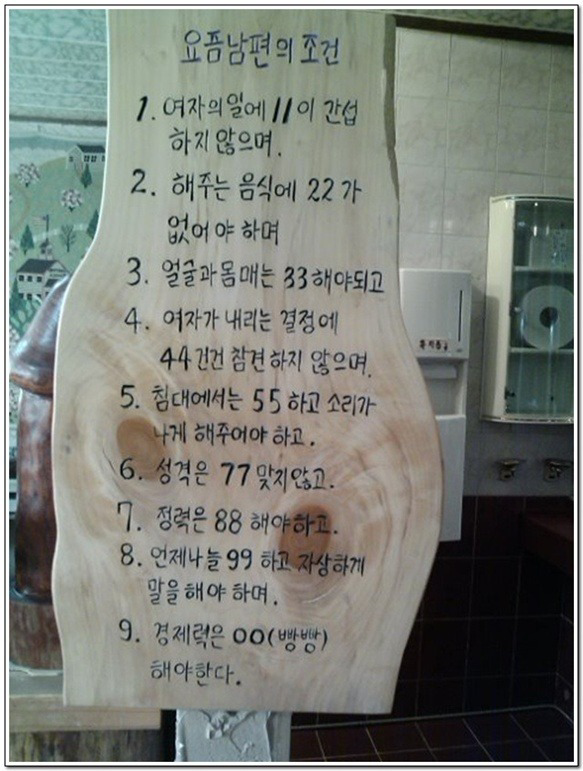 요즘남편의 조건
1. 여자의일에 11이 간섭
하지 않으며.
2. 해주는 음식에 22가
없어야 하며
3. 얼굴과 몸매는 33해야되고
4. 여자가 내리는 결정에
44건건 참견하지 않으며.
5. 침대에서는 55하고 소리가
나게 해주어야 하고.
6. 성격은 77맞지않고.
7. 정력은 88 해야하고.
8. 언제나늘 99 하고 자상하게
말을 해야 하며.
9. 경제력은 00(빵빵)
해야한다.